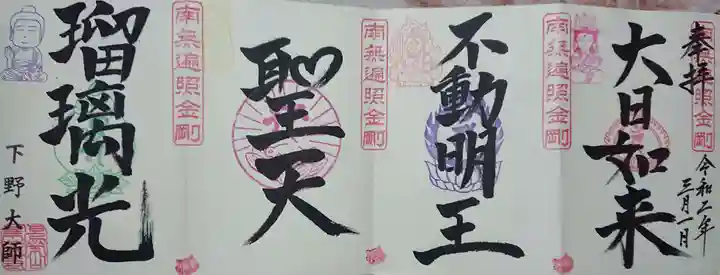 奉拝
令和二年
三月一日
大日如来
南無遍照金剛
不動明王
南無遍照金剛
聖天
南無遍照金剛
瑠璃光
下野大師